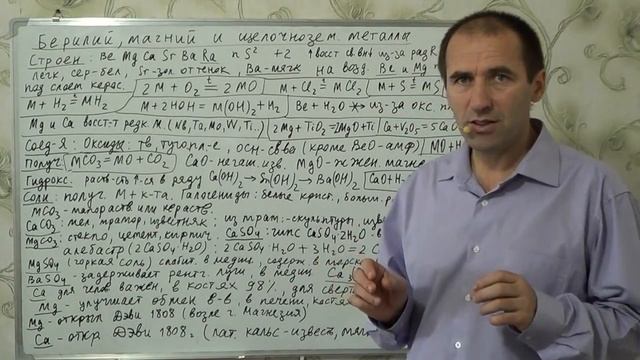 Берилий, магний и щелочнозем. металлы
Строен: Be Mg Ca Sr Ba Ra n S² +2 ↑ восст св. вниз из-за рад R
легк, сер-бел, Sr-зол оттенок, Ba-мягк на возд. Be и Mg
под слоем керос. 2M + O₂ = 2MO M + Cl₂ = MCl₂ M + S = MS
M + H₂ = MH₂ M + 2HOH = M(OH)₂ + H₂ Be + H₂O из-за окс. п
Mg и Ca восст-т редк. М. (Nb, Ta, Mo, W, Ti..) 2Mg + TiO₂ = 2MgO + Ti Ca + V₂O₅ = 5Ca
Соед-я: Оксиды: тв, тугопл-е, осн-св-ва (кроме BeO-амф) MO + H
Получ. MCO₃ = MO + CO₂ CaO-негаш. изв. MgO-жжен. магне
Гидрокс. раств-сть ↑-ся в ряду Ca(OH)₂ → Sr(OH)₂ → Ba(OH)₂ CaO + H
Соли: получ. М + к-та. Галогениды: белые крист.,
MCO₃ - малораств. или нераств.
CaCO₃: мел, мрамор, известняк из мрам: - скульптуры, изве
MgCO₃: стекло, цемент, кирпич. CaSO₄: гипс CaSO₄ 2H₂O - в
алебастр (2CaSO₄·H₂O). 2CaSO₄·H₂O + 3H₂O = 2C
MgSO₄ (горькая соль) слабит. в медиц, содерж в морск
BaSO₄ - задерживает рентг. лучи, в медиц.
Ca для чел важен, в костях 98%, для сверт
Mg - улучшает обмен в-в, в печени, костях
Mg - открыл Дэви 1808 (возле г. Магнезия)
Ca - откр Дэви 1808г (лат. кальс-известь,